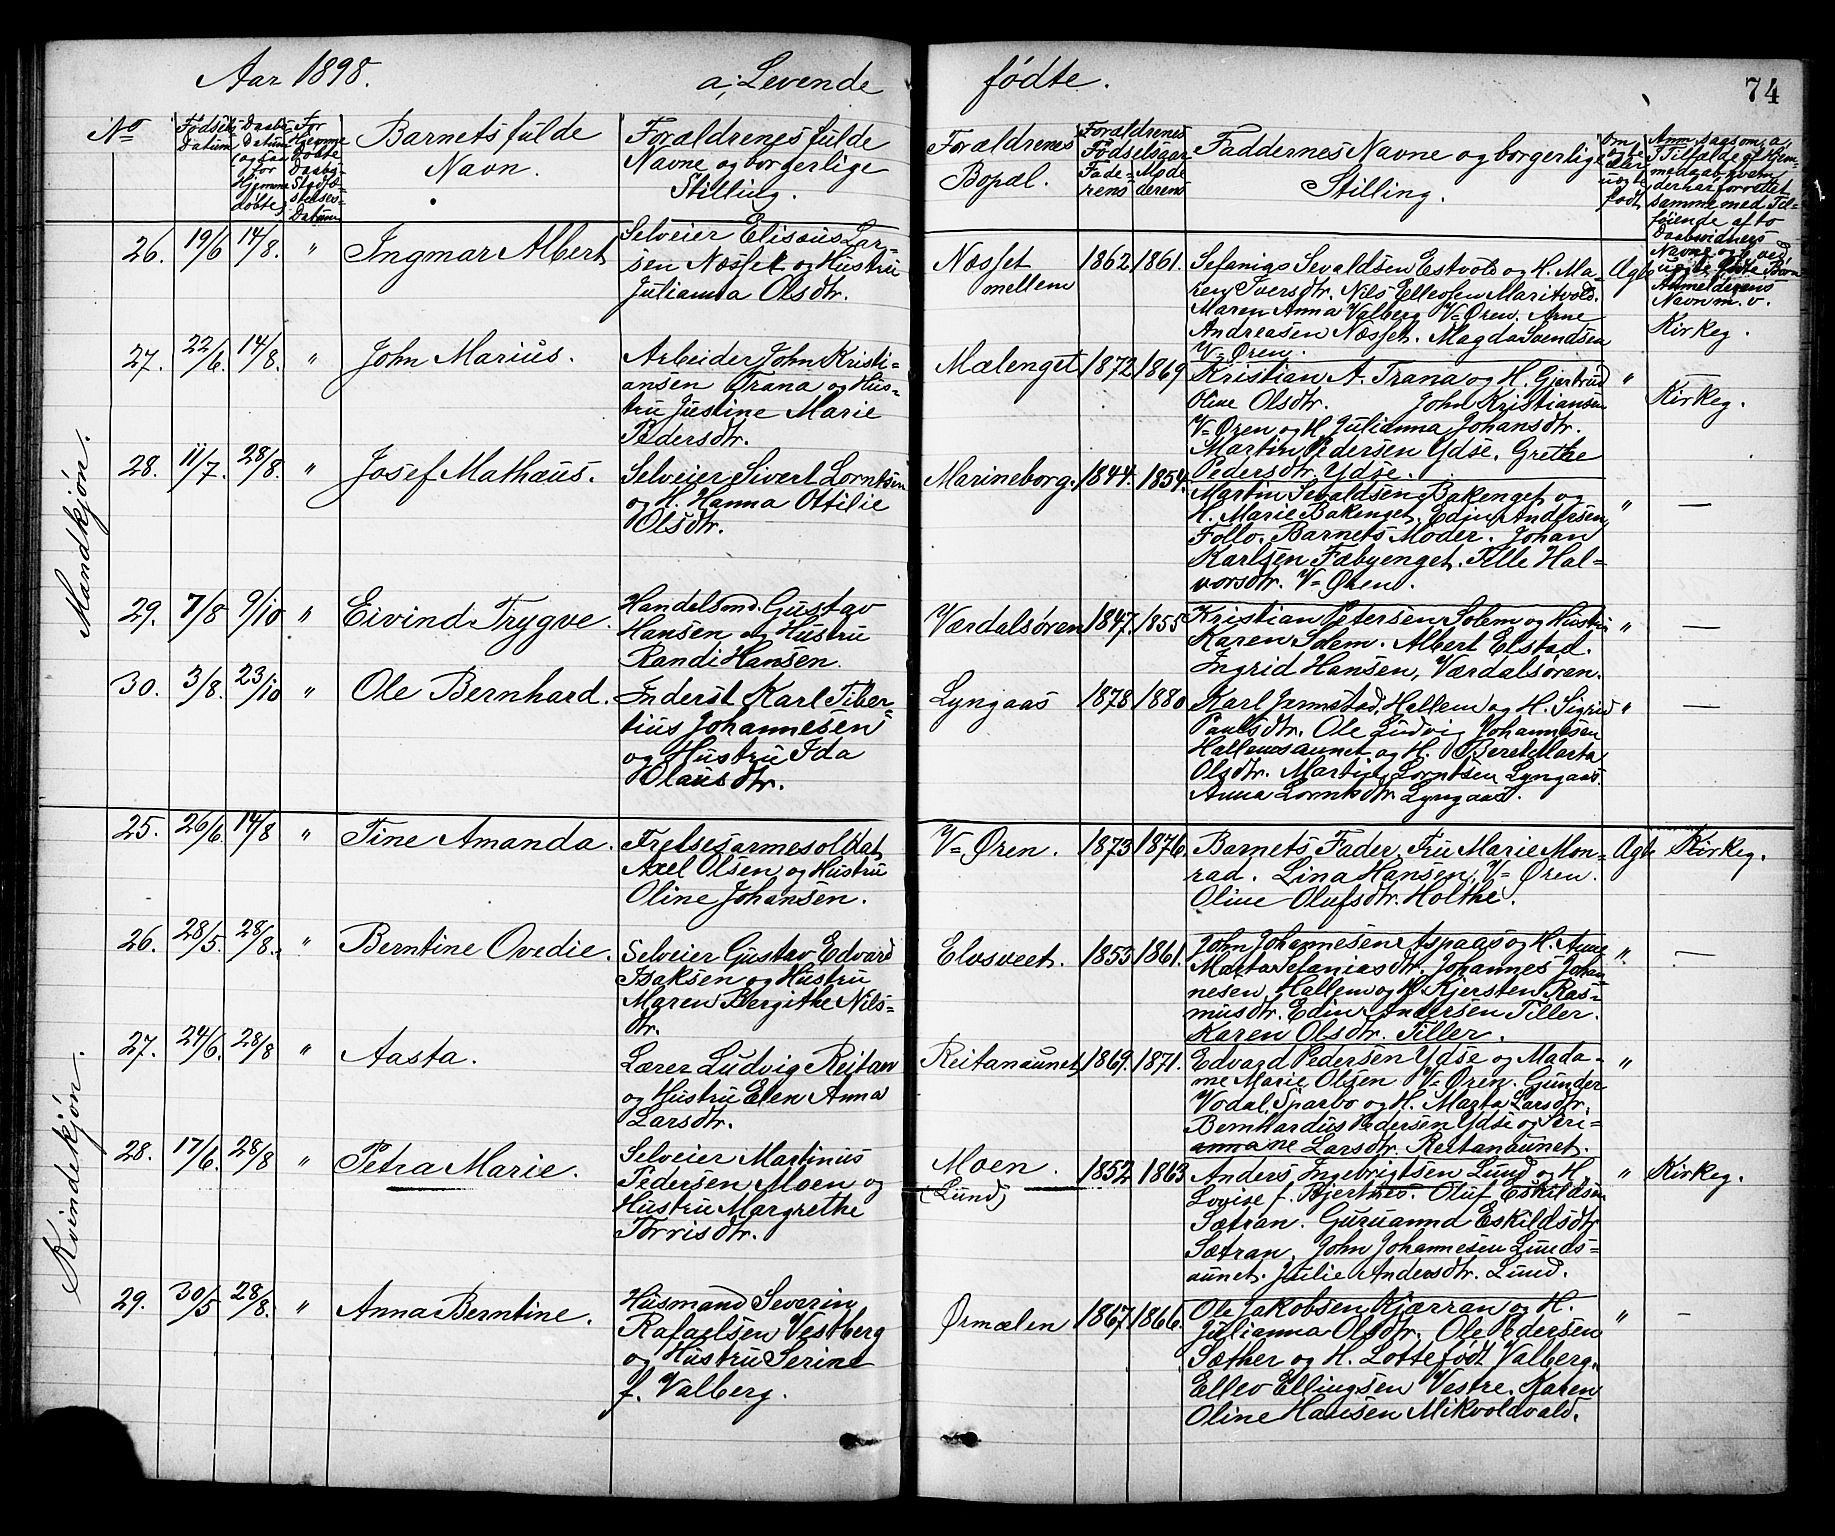 Aar 1898. a, Levende fødte. 74
No
Fødsels Datum
Daabs Datum
Barnets fulde
Navn.
Forældrenes fulde
Navne og borgerlige
Stilling.
Forældrenes
Bopæl.
Forældrenes
Fødselsaar
Fade- Mode
rens derens
Faddernes Navne og borgerlige
Stilling.
Mandkjøn.
26. 19/6 14/8. " Ingmar Albert
Selveier Elisæus Lar-
sen Næsset og Hustru
Julianna Olsdtr.
Næsset
mellem
1862. 1861.
Sefanias Sevaldsen Estvold og H. Ma-
ren Iversdtr. Nils Ellevsen Maritvold.
Maren Anna Valberg V=Øren. Arne
Andreasen Næsset. Magda Svendsen
V=Øren.
Agt.
Kirkeg.
27. 22/6. 14/8. " John Marius.
Arbeider John Kristi-
ansen Trana og Hus-
tru Justine Marie
Pedersdtr.
Mælenget 1872 1869
Kristian A. Trana og H. Gjertrud
Oline Olsdtr. John Kristiansen
V=Øren og H. Julianna Johansdtr.
Martin Pedersen Ydse. Grethe
Pedersdtr. Ydse.
"
Kirkeg.
28. 11/7. 28/8. " Josef Mathæus.
Selveier Sivert Lorntsen
og H. Hanna Ottilie
Olsdtr.
Marineborg. 1844. 1854.
Martin Sevaldsen Bakenget og
H. Marie Bakenget. Edin Andersen
Follo. Barnets Moder. Johan
Karlsen Fæbyenget. Elle Hal-
vorsdtr. V=Øren.
" —
29. 7/8 9/10 " Eivind Trygve.
Handelsmd. Gustav
Hansen og Hustru
Randi Hansen.
Værdalsøren 1847. 1855
Kristian Petersen Solem og Hustru
Karen Solem. Albert Elstad.
Ingrid Hansen, Værdalsøren.
" —
30. 3/8. 23/10 " Ole Bernhard.
Inderst Karl Tiber-
tius Johannesen
og Hustru Ida
Olausdtr.
Lyngaas 1878. 1880
Karl Jermstad, Hellem og H. Sigrid
Paulsdtr. Ole Ludvig Johannesen
Hallemsaunet og H. Beret Marta
Olsdtr. Martin Lorntsen Lyngaas.
Anna Lorntsdtr. Lyngaas.
" —
Kvindekjøn.
25. 26/6. 14/8 " Tine Amanda.
Frelsesarmesoldat
Axel Olsen og Hustru
Oline Johansen.
V=Øren. 1873 1876.
Barnets Fader, Fru Marie Mon-
rad. Lina Hansen, V=Øren.
Oline Olufsdtr. Holthe.
Agt. Kirkeg.
26. 28/5. 28/8. " Berntine Ovedie.
Selveier Gustav Edvard
Isaksen og Hustru
Maren Bergithe Nils-
dtr.
Elvsveet. 1853 1861.
John Johannesen Aspaas og H. Anne
Marta Sefaniasdtr. Johannes Johan-
nesen Hallem og H. Kjersten Ras-
musdtr. Edin Andersen Tiller.
Karen Olsdtr. Tiller.
" —
27. 24/6. 28/8 " Aasta.
Lærer Ludvig Reitan
og Hustru Elen Anna
Larsdtr.
Reitanaunet 1869. 1871.
Edvard Pedersen Ydse og Mada-
me Marie Olsen V=Øren. Gunder
Vodal, Sparbo og H. Marta Larsdtr.
Bernhardus Pedersen Ydse og Seri-
anna ne Larsdtr. Reitanaunet.
"
28. 17/6. 28/8 " Petra Marie.
Selveier Martinus
Pedersen Moen og
Hustru Margrethe
Torrisdtr.
Moen.
(Lund)
1852 1863
Anders Ingebrigtsen Lund og H.
Lovise f. Hjertnes. Oluf Eskildsen
Sætran. Guruanna Eskildsdtr
Sætran. John Johannesen Lunds-
aunet. Julie Andersdtr. Lund.
" Kirkeg.
29. 30/5 28/8. " Anna Berntine.
Husmand Severin
Rafaelsen Vestberg
og Hustru Serine
f. Valberg.
Ørmælen 1867. 1866.
Ole Jakobsen Kjærran og H.
Julianna Olsdtr. Ole Pedersen
Sæther og H. Lotte født Valberg.
Ellev Ellingsen Vestre. Karen
Oline Hansen Mikvoldvald.
" —